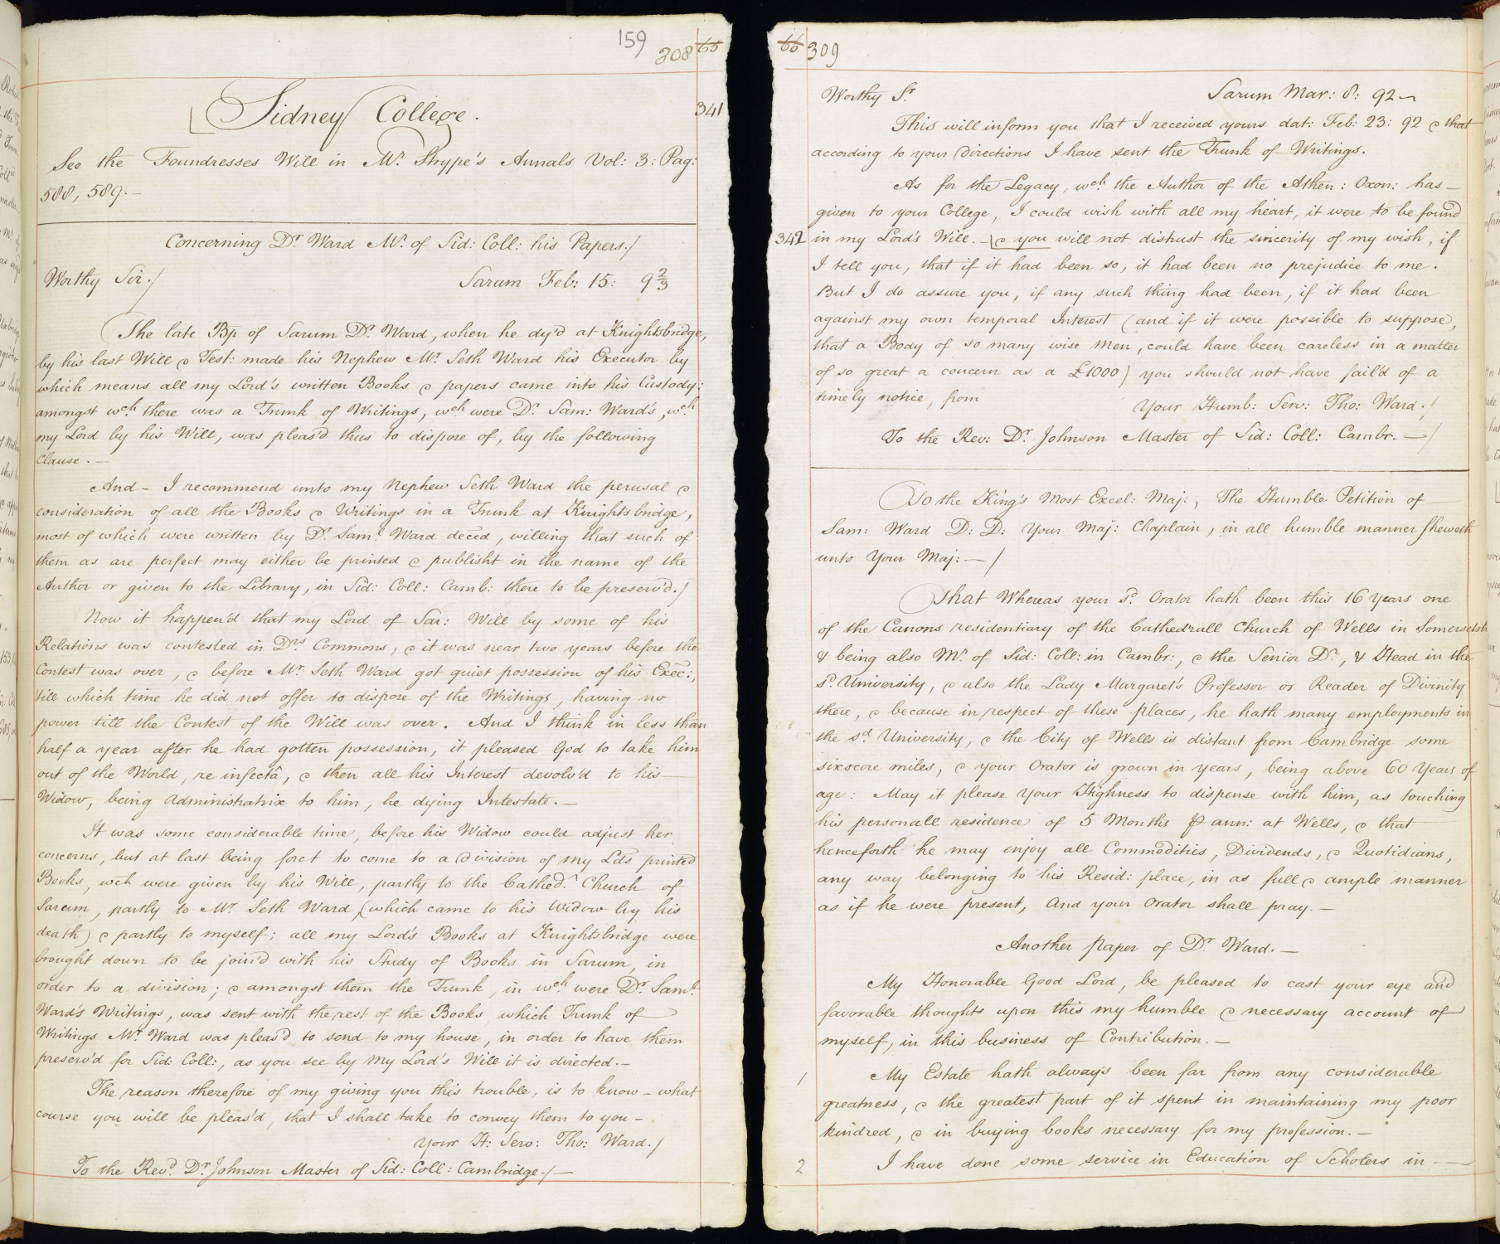 159
308 65
341
Sidney College.
See the Foundresses Will in Mr. Strype's Annals Vol: 3: Pag:
588, 589.—
Concerning Dr Ward Mr. of Sid: Coll: his Papers./
Worthy Sir./ Sarum Feb: 15: 9 2/3
The late Bp of Sarum Dr. Ward, when he dy'd at Knightsbridge,
by his last Will & Test: made his Nephew Mr. Seth Ward his Executor by
which means all my Lord's written Books & papers came into his Custody:
amongst wch there was a Trunk of Writings, wch were Dr. Sam: Ward's, wch
my Lord by his Will, was pleas'd thus to dispose of, by the following
Clause.—
And— I recommend unto my Nephew Seth Ward the perusal &
consideration of all the Books & Writings in a Trunk at Knightsbridge,
most of which were written by Dr. Saml. Ward deced, willing that such of
them as are perfect may either be printed & publisht in the name of the
Author or given to the Library, in Sid: Coll: Camb: there to be preserv'd./
Now it happen'd that my Lord of Sar: Will by some of his
Relations was contested in Drs Commons, & it was near two years before the
Contest was over, & before Mr. Seth Ward got quiet possession of his Exec:,
till which time he did not offer to dispose of the Writings, having no
power till the Contest of the Will was over. And I think in less than
half a year after he had gotten possession, it pleased God to take him
out of the World, re infectâ, & then all his Interest devolv'd to his—
Widow, being Administratrix to him, he dying Intestate.—
It was some considerable time, before his Widow could adjust her
concerns, but at last being forc't to come to a division of my Lds printed
Books, wch were given by his Will, partly to the Cathed: Church of
Sarum, partly to Mr. Seth Ward (which came to his Widow by his
death) & partly to myself; all my Lord's Books at Knightsbridge were
brought down to be join'd with his Study of Books in Sarum, in
order to a division; & amongst them the Trunk, in wch were Dr. Saml.
Ward's Writings, was sent with the rest of the Books, which Trunk of
Writings Mr. Ward was pleas'd to send to my house, in order to have them
preserv'd for Sid: Coll:, as you see by my Lord's Will it is directed.—
The reason therefore of my giving you this trouble, is to know— what
course you will be pleas'd, that I shall take to convey them to you—
Your H: Serv: Tho: Ward./
To the Revd. Dr Johnson Master of Sid: Coll: Cambridge./—
66 309
Worthy Sr. Sarum Mar: 8: 92—
This will inform you that I received yours dat: Feb: 23: 92 & that
according to your Directions I have sent the Trunk of Writings.
As for the Legacy, wch the Author of the Athen: Oxon: has—
given to your College, I could wish with all my heart, it were to be found
342 in my Lord's Will.— & you will not distrust the sincerity of my wish, if
I tell you, that if it had been so, it had been no prejudice to me.
But I do assure you, if any such thing had been, if it had been
against my own temporal Interest (and if it were possible to suppose,
that a Body of so many wise men, could have been careless in a matter
of so great a concern as a £1000) you should not have fail'd of a
timely notice, from Your Humb: Serv: Tho: Ward./
To the Rev: Dr Johnson Master of Sid: Coll: Cambr.—/
To the King's Most Excel: Maj:, The Humble Petition of
Sam: Ward D: D: Your Maj: Chaplain, in all humble manner sheweth
unto Your Maj:—/
That Whereas your sd. Orator hath been this 16 Years one
of the Canons residentiary of the Cathedrall Church of Wells in Somersetsh
& being also Mr. of Sid: Coll: in Cambr:, & the Senior Dr., & Head in the
sd. University, & also the Lady Margaret's Professor or Reader of Divinity
there, & because in respect of these places, he hath many employments in
the sd University, & the City of Wells is distant from Cambridge some
sixscore miles, & your Orator is grown in years, being above 60 Years of
age: May it please Your Highness to dispense with him, as touching
his personall residence of 5 Months ⅌ ann: at Wells, & that
henceforth he may enjoy all Commodities, Dividends, & Quotidians,
any way belonging to his Resid: place, in as full & ample manner
as if he were present, And your Orator shall pray.—
Another paper of Dr Ward.—
My Honorable Good Lord, be pleased to cast your eye and
favorable thoughts upon this my humble & necessary account of
myself, in this business of Contribution.—
1 My Estate hath always been far from any considerable
greatness, & the greatest part of it spent in maintaining my poor
kindred, & in buying books necessary for my profession.—
2 I have done some service in Education of Scholers in—